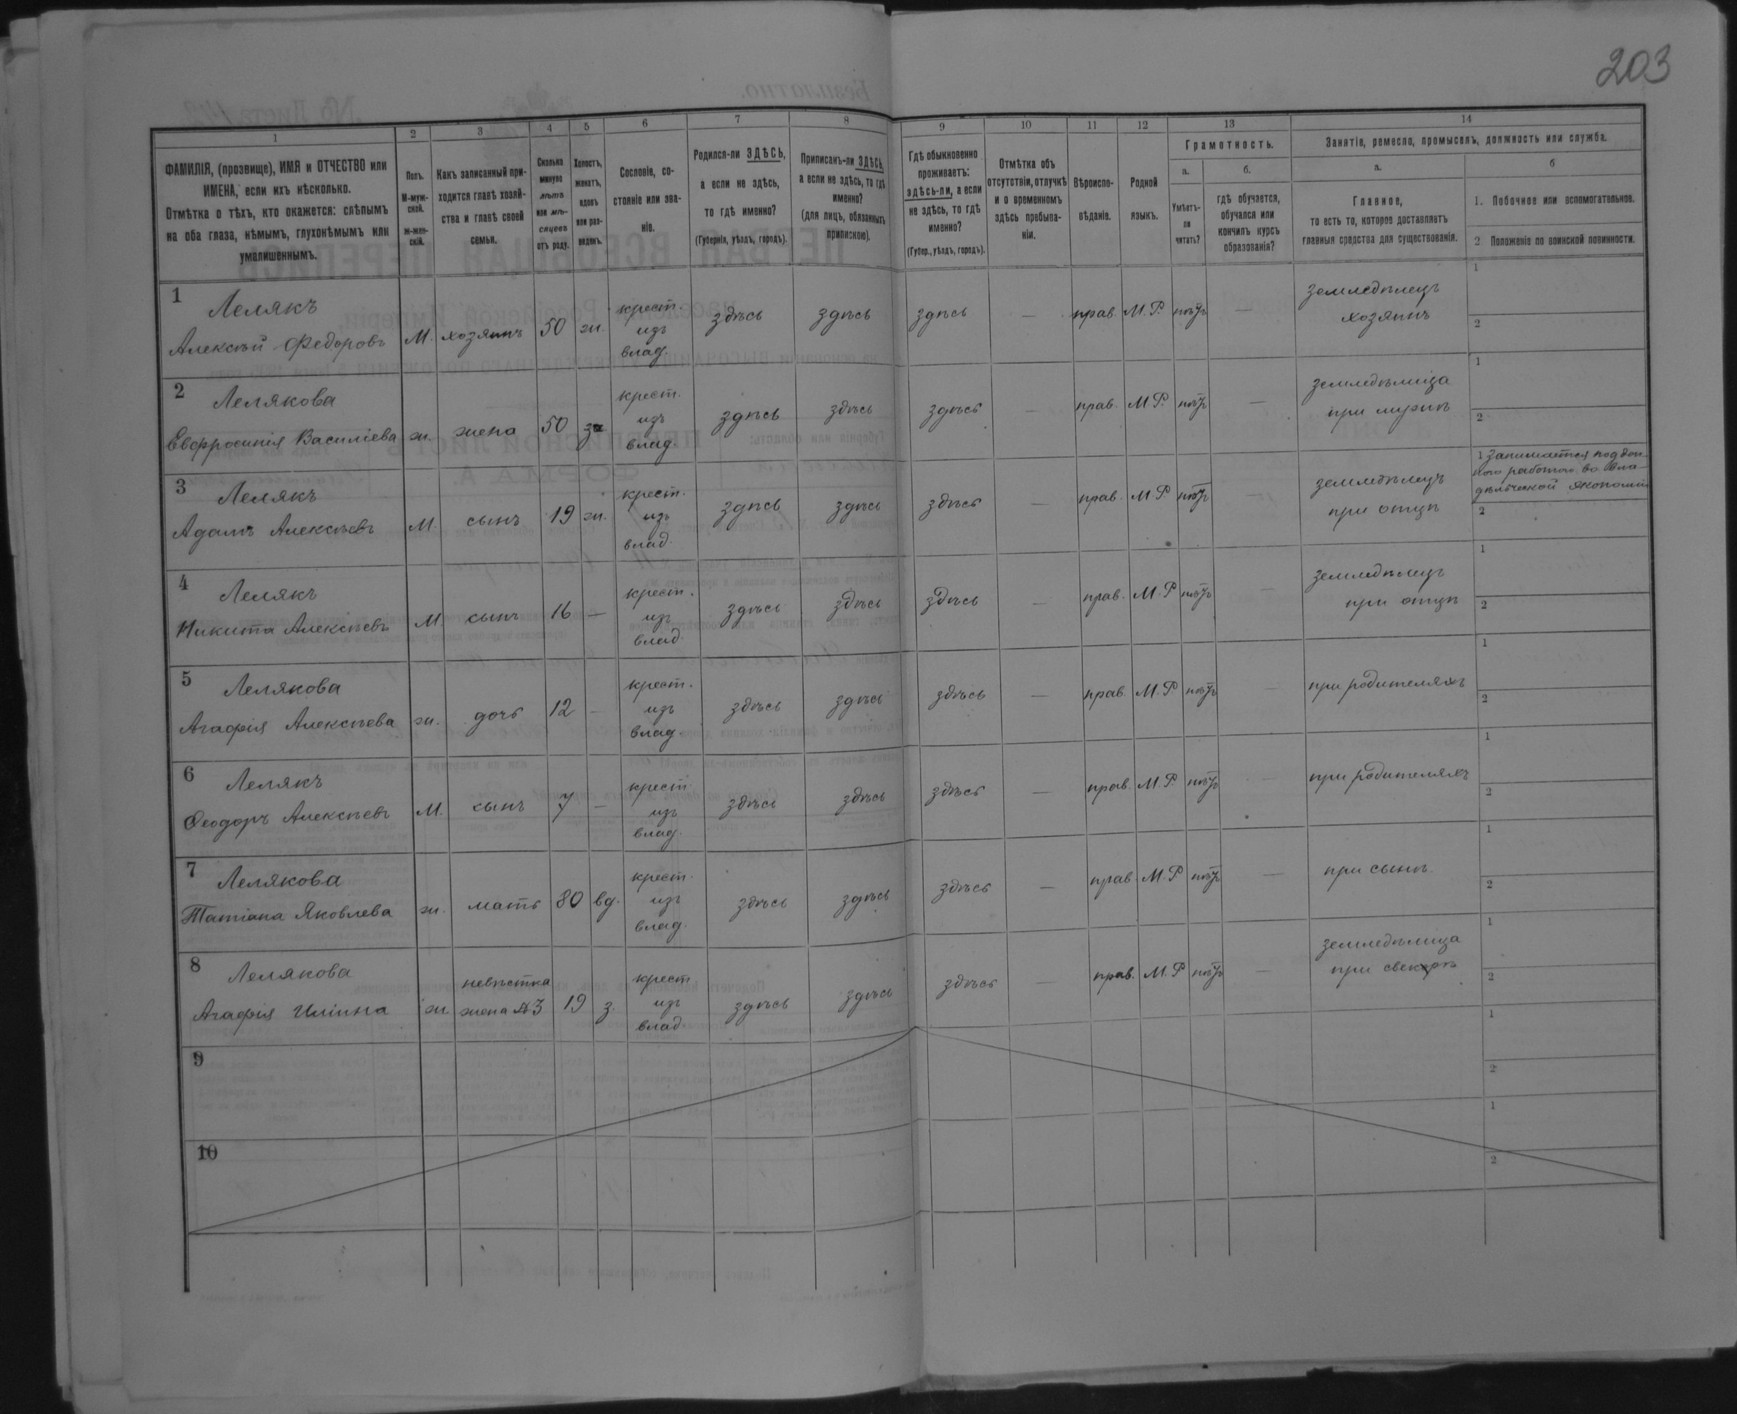 203
1
2
3
4
5
6
7
8
9
10
11
12
13
14
ФАМИЛІЯ, (прозвище), ИМЯ и ОТЧЕСТВО или
ИМЕНА, если ихъ нѣсколько.
Отмѣтка о тѣхъ, кто окажется: слѣпымъ
на оба глаза, нѣмымъ, глухонѣмымъ или
умалишеннымъ.
Полъ.
М-муж-
ской.
ж-жен-
скій.
Какъ записанный при-
ходится главѣ хозяй-
ства и главѣ своей
семьи.
Сколько
минуло
лѣтъ
или мѣ-
сяцевъ
отъ роду.
Холостъ,
женатъ,
вдовъ
или раз-
веденъ.
Сословіе, со-
стояніе или зва-
ніе.
Родился-ли ЗДѢСЬ,
а если не здѣсь,
то гдѣ именно?
(Губернія, уѣздъ, городъ).
Приписанъ-ли ЗДѢСЬ,
а если не здѣсь, то гдѣ
именно?
(для лицъ, обязанныхъ
припискою).
Гдѣ обыкновенно
проживаетъ:
здѣсь-ли, а если
не здѣсь, то гдѣ
именно?
(Губер., уѣздъ, городъ).
Отмѣтка объ
отсутствіи, отлучкѣ
и о временномъ
здѣсь пребыва-
ніи.
Вѣроиспо-
вѣданіе.
Родной
языкъ.
Грамотность.
а.
Умѣетъ-
ли
читать?
б.
гдѣ обучается,
обучался или
кончилъ курсъ
образованія?
Занятіе, ремесло, промыселъ, должность или служба.
а.
Главное,
то есть то, которое доставляетъ
главныя средства для существованія.
б
1. Побочное или вспомогательное.
2 Положеніе по воинской повинности.
1 Лелякъ
Алексѣй Федоровъ М. хозяинъ 50 ж. крест. изъ влад. здѣсь здѣсь здѣсь — прав. М.Р. нѣтъ — земледѣлецъ хозяинъ 1 2
2 Лелякова
Евфросинія Василіева ж. жена 50 з. крест. изъ влад. здѣсь здѣсь здѣсь — прав. М.Р. нѣтъ — земледѣлица при мужѣ 1 2
3 Лелякъ
Адамъ Алексѣевъ М. сынъ 19 ж. крест. изъ влад. здѣсь здѣсь здѣсь — прав. М.Р. нѣтъ — земледѣлецъ при отцѣ 1 Занимается поден-
ною работою во вла-
дѣльческой экономіи 2
4 Лелякъ
Никита Алексѣевъ М сынъ 16 — крест. изъ влад. здѣсь здѣсь здѣсь — прав. М.Р. нѣтъ — земледѣлецъ при отцѣ 1 2
5 Лелякова
Агафія Алексѣева ж. дочь 12 — крест. изъ влад. здѣсь здѣсь здѣсь — прав. М.Р. нѣтъ — при родителяхъ 1 2
6 Лелякъ
Ѳеодоръ Алексѣевъ М. сынъ 7 — крест. изъ влад. здѣсь здѣсь здѣсь — прав. М.Р. нѣтъ — при родителяхъ 1 2
7 Лелякова
Татіана Яковлева ж. мать 80 вд. крест. изъ влад. здѣсь здѣсь здѣсь — прав. М.Р. нѣтъ — при сынѣ 1 2
8 Лелякова
Агафія Иліина ж. невѣстка жена №3 19 з. крест. изъ влад. здѣсь здѣсь здѣсь — прав. М.Р. нѣтъ — земледѣлица при свекрѣ 1 2
9 1 2
10 1 2